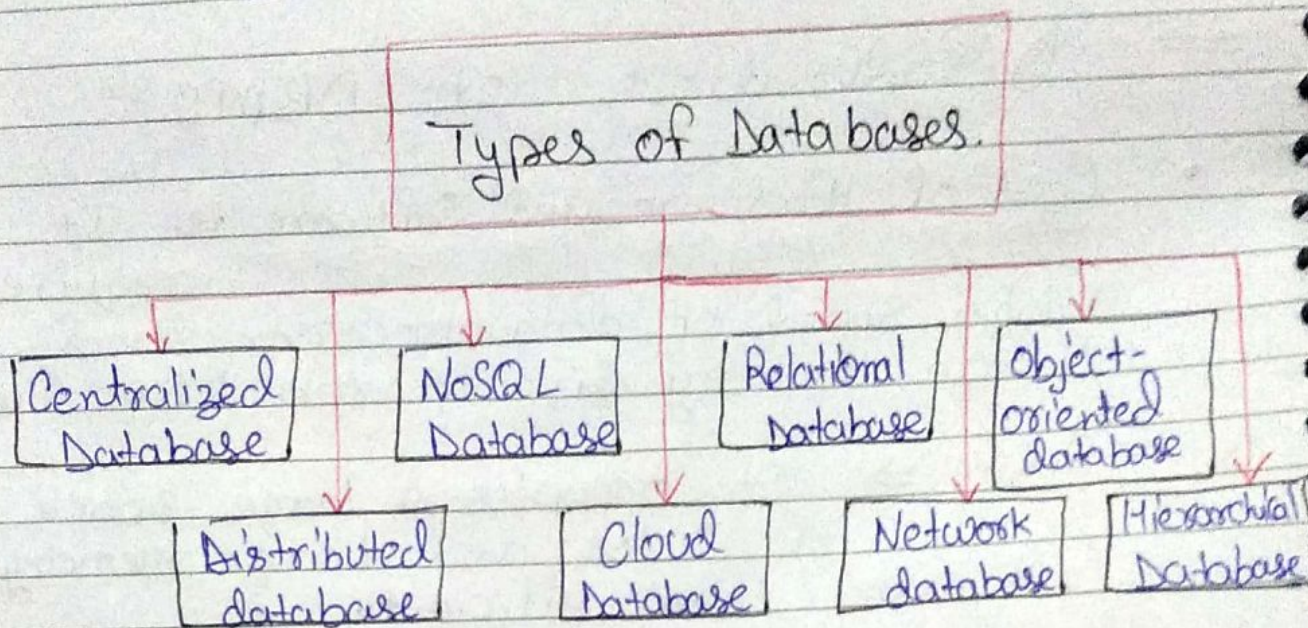 Types of Databases.
Centralized
Database
NoSQL
Database
Relational
Database
Object-
oriented
database
Distributed
database
Cloud
Database
Network
database
Hierarchial
Database